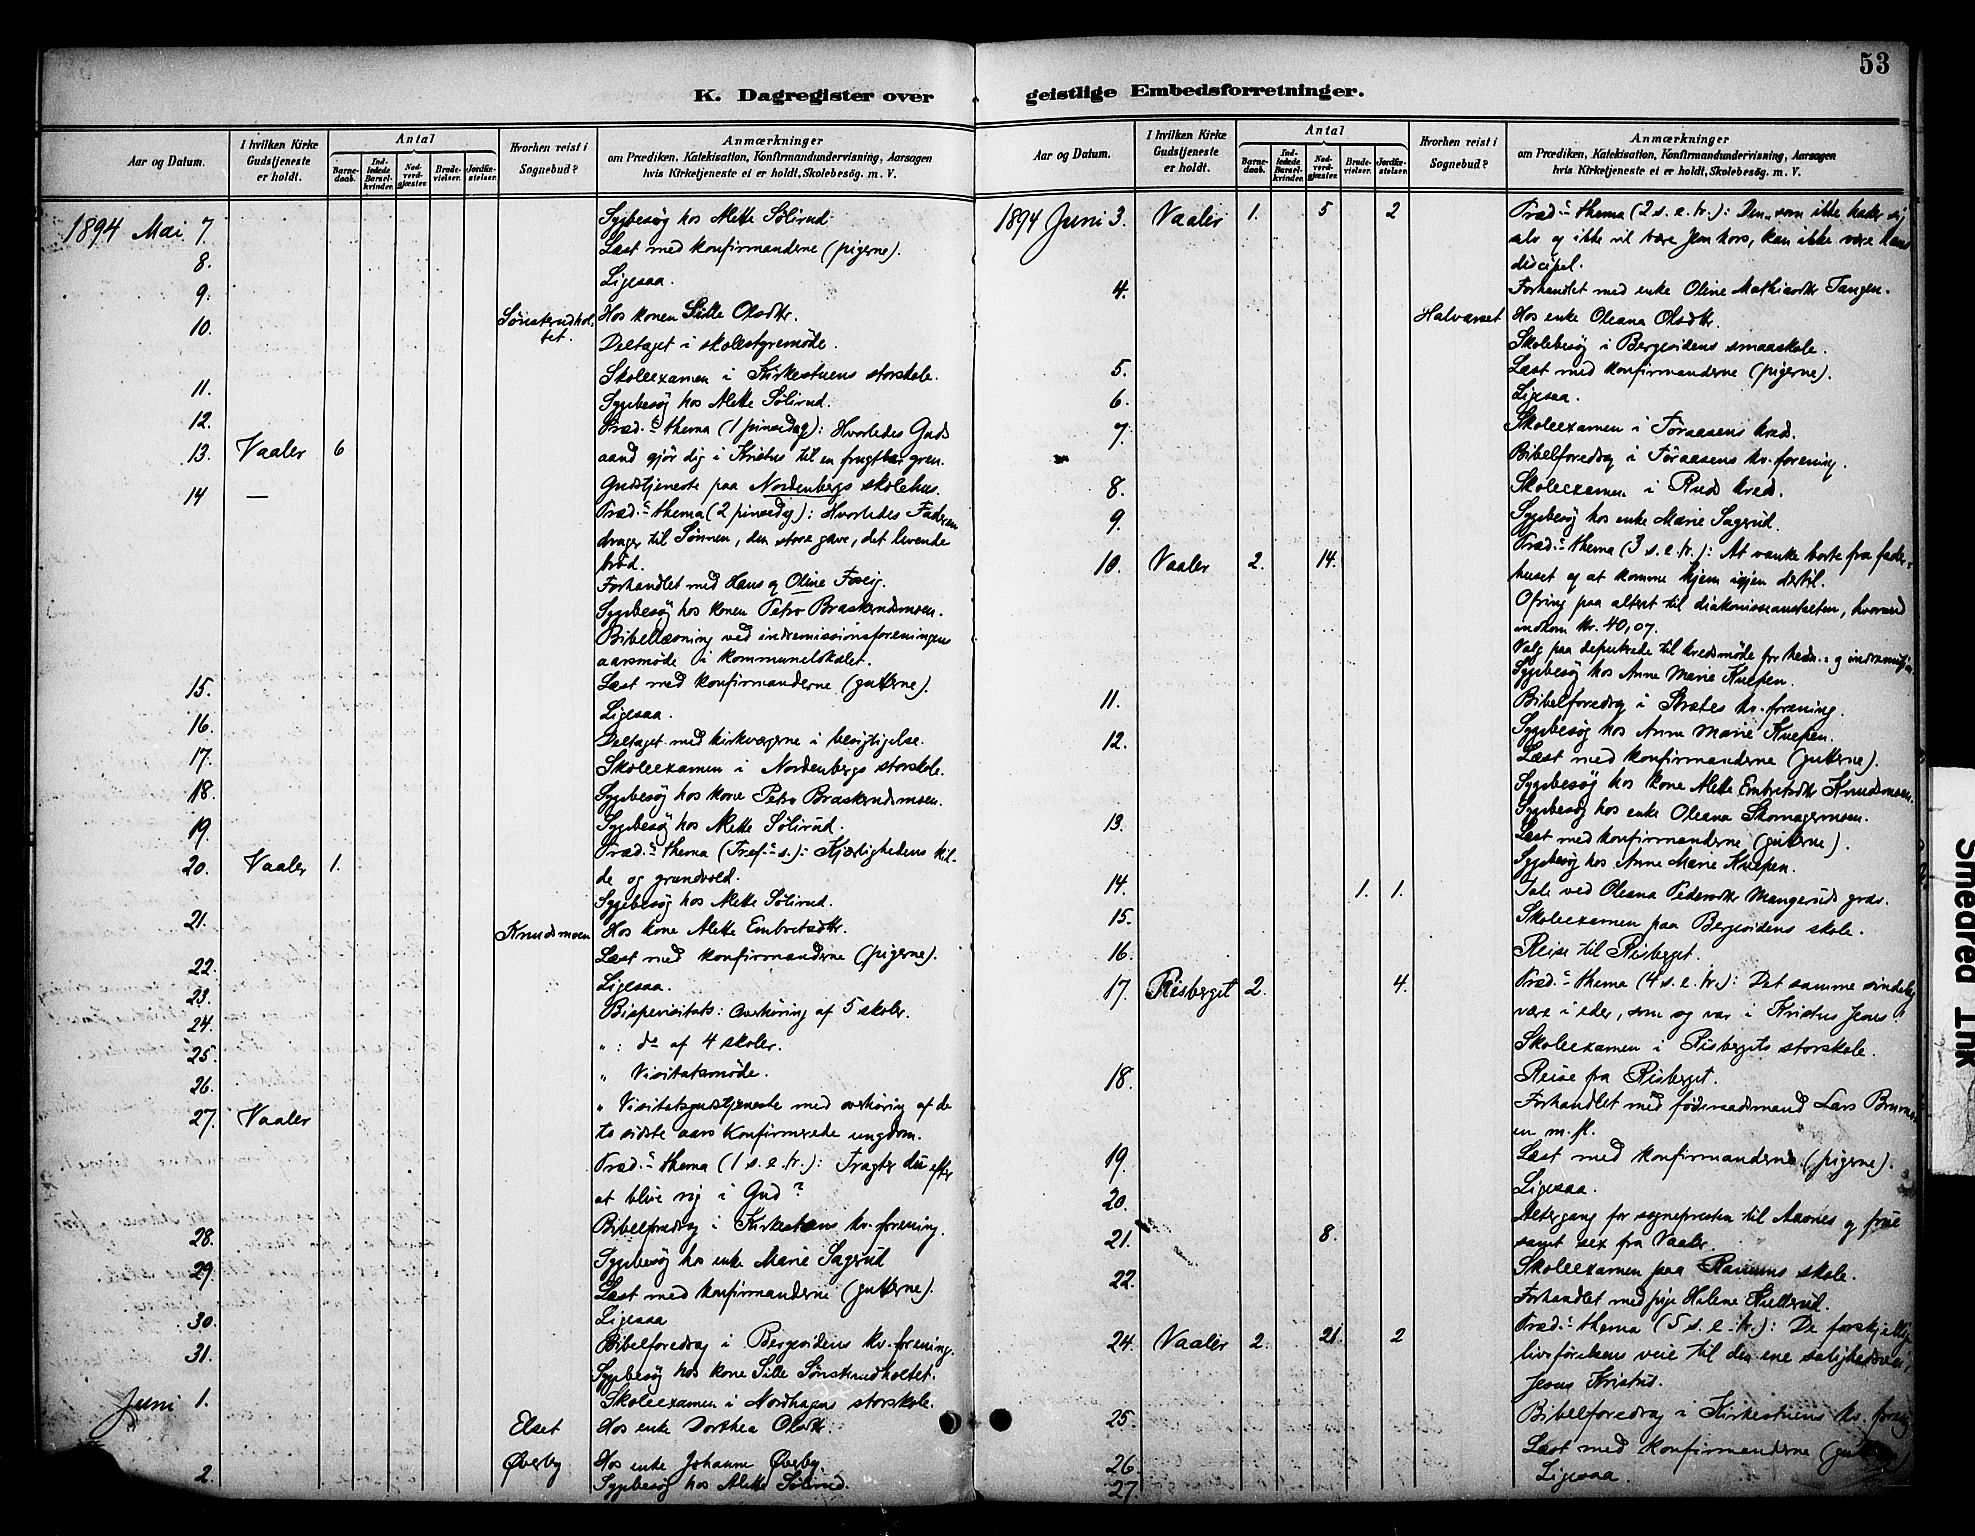 53
K. Dagregister over geistlige Embedsforretninger.
Aar og Datum. I hvilken Kirke Gudstjeneste er holdt. Antal Barnedaab. Indledede Barselkvinder. Nadverdgjæster. Brudevielser. Jordfæstelser. Hvorhen reist i Sognebud? Anmærkninger om Prædiken, Katekisation, Konfirmandundervisning, Aarsagen hvis Kirketjeneste ei er holdt, Skolebesøg. m. V.
1894 Mai 7. Sygebesøg hos Mette Sølirud.
8. Læst med konfirmanderne (pigerne).
9. Ligesaa.
10. Sønskrudholtet. Hos konen Sille Olsdtr.
Deltaget i skolestyremøde.
11. Skoleexamen i Kirkestuens storskole.
12. Sygebesøg hos Mette Sølirud.
13. Vaaler 6 Præd.s thema (1 pinsedag): Hvorledes Guds
aand gjør dig i Kristus til en frugtbar gren.
14 — Gudstjeneste paa Nordenbergs skolehus.
Præd.s thema (2 pinsedg): Hvorledes Faderen
drager til Sønnen, den store gave, det levende
brød.
Forhandlet med Hans og Oline
Sygebesøg hos konen Petro Braskerudmoen.
Bibellæsning ved indremissionsforeningens
aarsmøde i kommunelokalet.
15. Læst med konfirmanderne (gutterne).
16. Ligesaa.
17. Deltaget med kirkværgerne i besigtigelse.
Skoleexamen i Nordenbergs storskole.
18. Sygebesøg hos kone Petro Braskerudmoen.
19. Sygebesøg hos Mette Sølirud.
20. Vaaler 1. Præd.s thema (Tref.s s.): Kjærlighedens kil-
de og grundvold.
Sygebesøg hos Mette Sølirud.
21. Knudsmoen Hos kone Mette Embretsdtr.
22. Læst med konfirmanderne (pigerne).
23. Ligesaa.
24. Bispevisitats: overhøring af 5 skoler.
25. „ : do af 4 skoler.
26. „ Visitatsmøde.
27. Vaaler „ Visitatsgudstjeneste med overhøring af de
to sidste aars konfirmerede ungdom.
Præd.s thema (1 s. e. tr.): Tragter du efter
at blive rig i Gud?
28. Bibelforedrag i Kirkestuens kv. forening.
29. Sygebesøg hos enke Marie Sagerud
Læst med konfirmanderne (gutterne).
30. Ligesaa
31. Bibelforedrag i Bergesidens kv. forening.
Sygebesøg hos kone Sille Sønskrudholtet.
Juni 1. Skoleexamen i Nordhagens storskole.
Elset Hos enke Dorthea Olsdtr.
2. Øverby Hos enke Johanne Øverby.
Sygebesøg hos Mette Sølirud.
Aar og Datum. I hvilken Kirke Gudstjeneste er holdt. Antal Barnedaab. Indledede Barselkvinder. Nadverdgjæster. Brudevielser. Jordfæstelser. Hvorhen reist i Sognebud? Anmærkninger om Prædiken, Katekisation, Konfirmandundervisning, Aarsagen hvis Kirketjeneste ei er holdt, Skolebesøg. m. V.
1894 Juni 3. Vaaler 1. 5 2 Præd.s thema (2 s. e. tr.): Den, som ikke hader sig
selv og ikke vil bære Jesu kors, kan ikke være hans
discipel.
4. Forhandlet med enke Oline Mathisdtr Tangen.
Halvorset Hos enke Oleana Olsdtr.
Skolebesøg i Bergesidens smaaskole.
5. Læst med konfirmanderne (pigerne).
6. Ligesaa.
7. Skoleexamen iFøraasens kreds.
Bibelforedrag i Føraasens kv. forening.
8. Skoleexamen i Ruds kreds.
9. Sygebesøg hos enke Marie Sagerud.
10. Vaaler 2. 14. Præd.s thema (3 s. e. tr.): At vanke borte fra fader-
huset og at komme hjem igjen dertil.
Ofring paa alteret til diakonisseanstalten, hvorved
indkom Kr. 40,07.
Valg paa deputerede til kredsmøde for hedn.: og indremissjon
Sygebesøg hos Anne Marie Knepen.
11. Bibelforedrag i Strætes kv. forening.
12. Sygebesøg hos Anne Marie Knepen.
Læst med konfirmanderne (gutterne).
Sygebesøg hos kone Mette Embretsdtr Knudsmoen.
13. Sygebesøg hos enke Oleana Skomagermoen.
Læst med konfirmanderne (gutterne).
Sygebesøg hos Anne Marie Knepen.
14. 1. 1. Tale ved Oleana Pedersdtr Mangeruds grav.
15. Skoleexamen paa Bergesidens skole.
16. Reise til Risberget.
17. Risberget 2. 4. Præd.s thema (4 s. e. tr.): Det samme sindelag
være i eder, som og var i Kristus Jesus.
Skoleexamen i Risbergets storskole.
18. Reise fra Risberget.
Forhandlet med føderaadsmand Lars
en m. fl.
19. Læst med konfirmanderne (pigerne).
20. Ligesaa.
21. 8. Altergang for sognepresten til Aasnes og frue
samt sex fra Vaaler.
22. Skoleexamen paa skole.
Forhandlet med pige Helene
24. Vaaler 2. 21. 2 Præd.s thema (5 s. e. tr.): De forskjellige
livsførelsens veie til den ene salighedsvei,
Jesus Kristus.
25. Bibelforedrag i Kirkestuens kv. forening
26. Læst med konfirmanderne (gutterne)
27. Ligesaa.
Smedred Ink